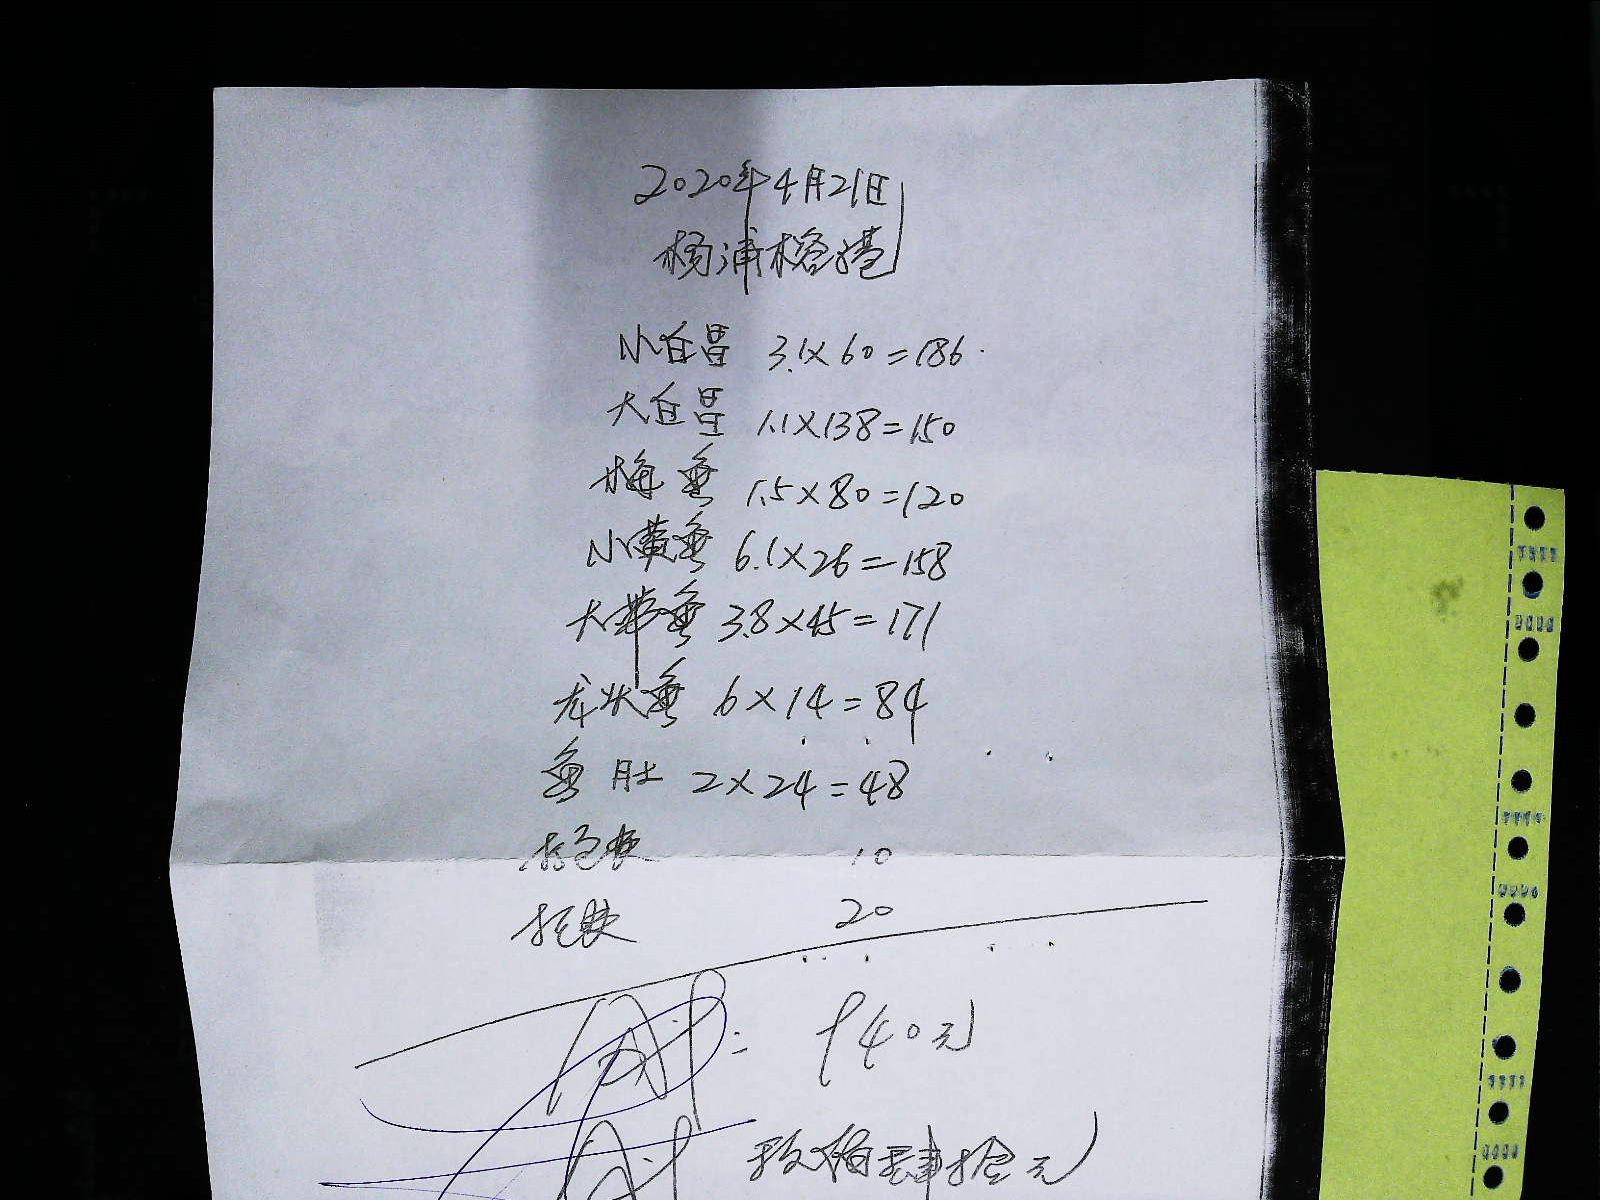 2020年4月21日
杨浦榕港
小白昌 3.1×60=186
大白昌 1.1×138=150
梅鱼 1.5×80=120
小黄鱼 6.1×26=158
大带鱼 3.8×45=171
龙头鱼 6×14=84
鱼肚 2×24=48
打包费 10
10
20
940元
玖佰肆拾元